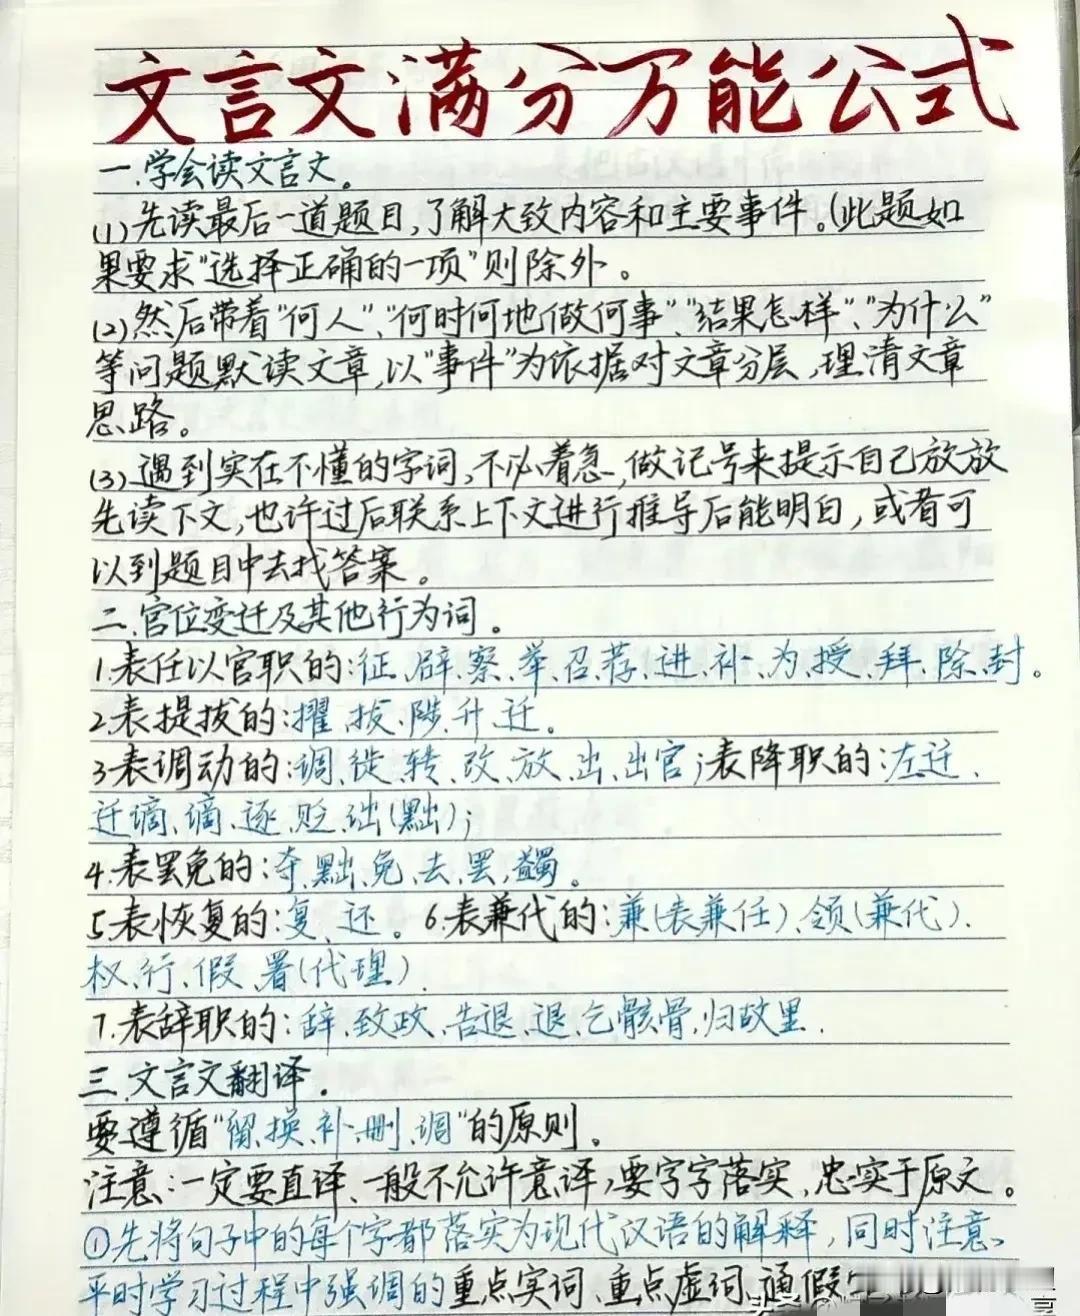 文言文满分万能公式
一.学会读文言文。
(1)先读最后一道题目,了解大致内容和主要事件。(此题如
果要求"选择正确的一项"则除外。
(2)然后带着"何人"、"何时何地做何事"、"结果怎样"、"为什么"
等问题默读文章,以"事件"为依据对文章分层,理清文章
思路。
(3)遇到实在不懂的字词,不必着急,做记号来提示自己放放
先读下文,也许过后联系上下文进行推导后能明白,或者可
以到题目中去找答案。
二.官位变迁及其他行为词。
1.表任以官职的:征、辟、察、举、召、荐、进、补、为、授、拜、除、封。
2.表提拔的:擢、拔、陟、升、迁。
3.表调动的:调、徙、转、改、放、出、出官;表降职的:左迁、
迁谪、谪、逐、贬、诎(黜);
4.表罢免的:夺、黜、免、去、罢、蠲。
5.表恢复的:复、还。6.表兼代的:兼(表兼任)、领(兼代)、
权、行、假、署(代理)
7.表辞职的:辞、致政、告退、退、乞骸骨、归故里.
三.文言文翻译.
要遵循"留、换、补、删、调"的原则。
注意:一定要直译、一般不允许意译,要字字落实,忠实于原文。
①先将句子中的每个字都落实为现代汉语的解释,同时注意、
平时学习过程中强调的重点实词、重点虚词、通假